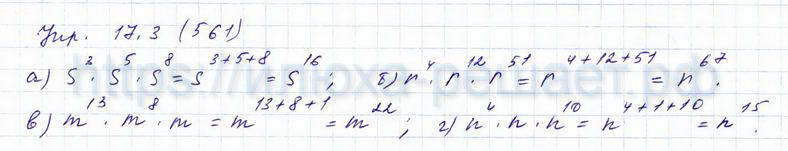 Упр. 17.3 (561)
а) s³ · s⁵ · s⁸ = s³⁺⁵⁺⁸ = s¹⁶ ; б) r⁴ · r¹² · r⁵¹ = r⁴⁺¹²⁺⁵¹ = r⁶⁷ .
в) m¹³ · m⁸ · m = m¹³⁺⁸⁺¹ = m²² ; г) n⁴ · n · n¹⁰ = n⁴⁺¹⁺¹⁰ = n¹⁵ .
https://илюха-решает.рф